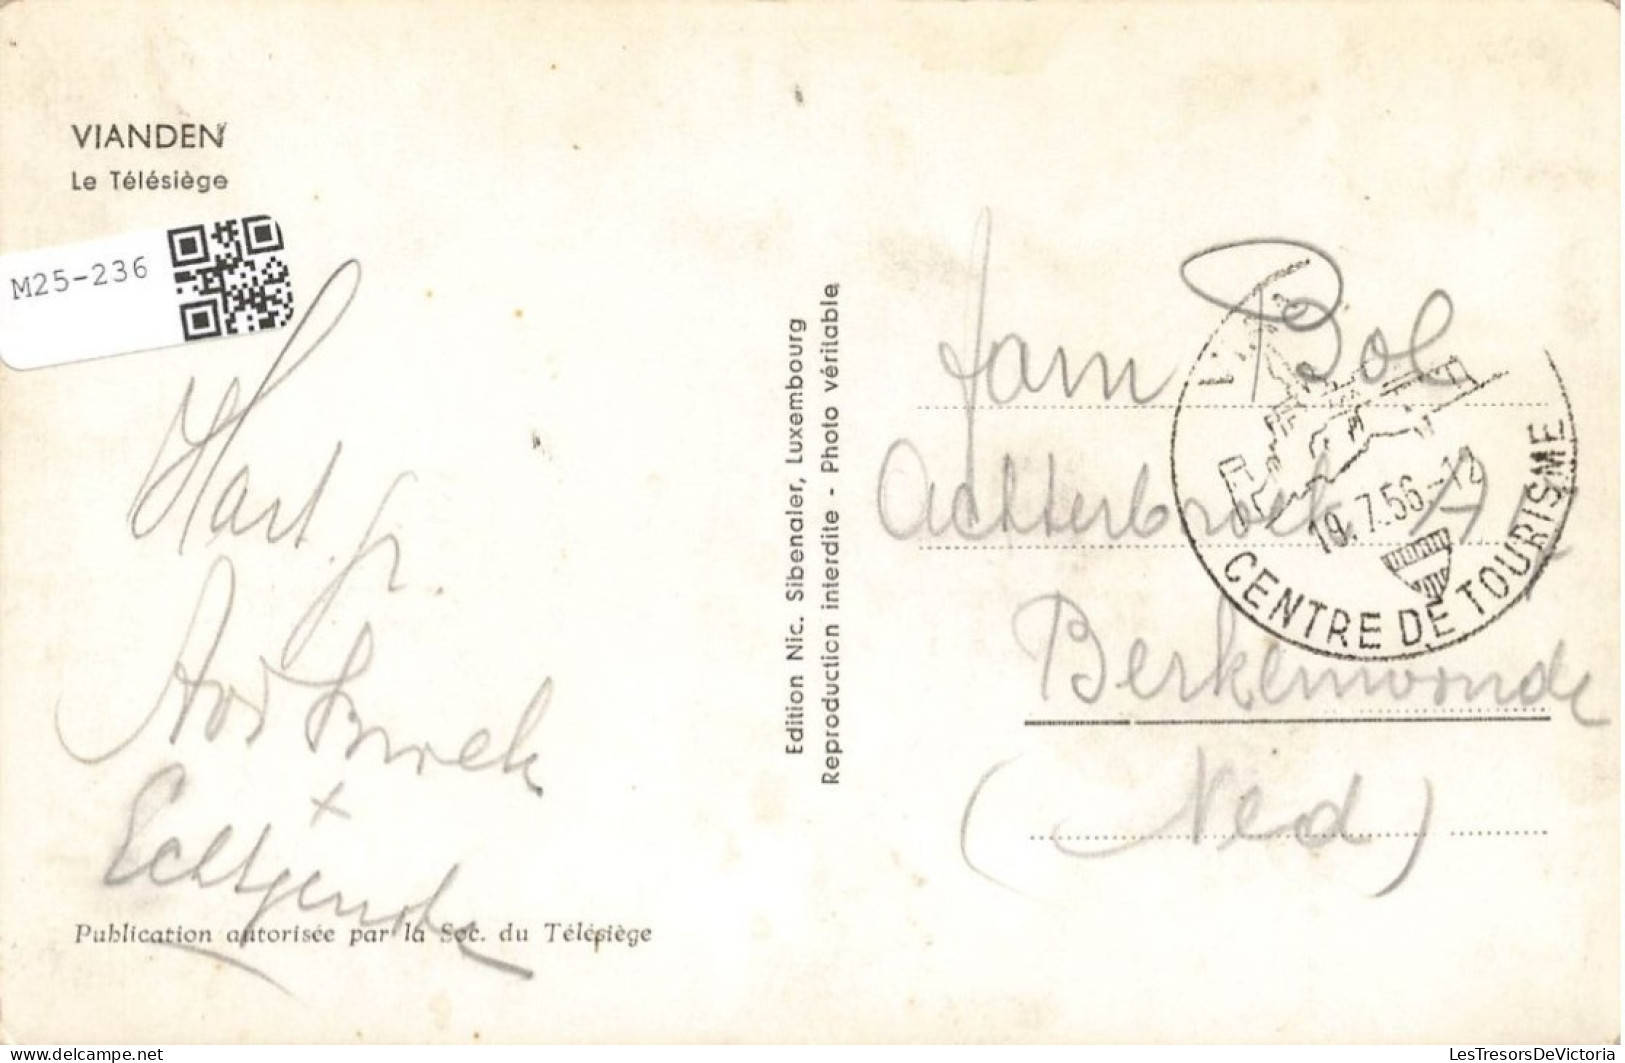 VIANDEN
Le Télésiège
M25-236
Hart. gr.
Echtgenote
Publication autorisée par la Soc. du Télésiège
Edition Nic. Sibenaler, Luxembourg
Reproduction interdite - Photo véritable
Fam Bol
Achterbroek A
Berkenwoude
(Ned)
19.7.56-12
CENTRE DE TOURISME
delcampe.net
LesTresorsDeVictoria